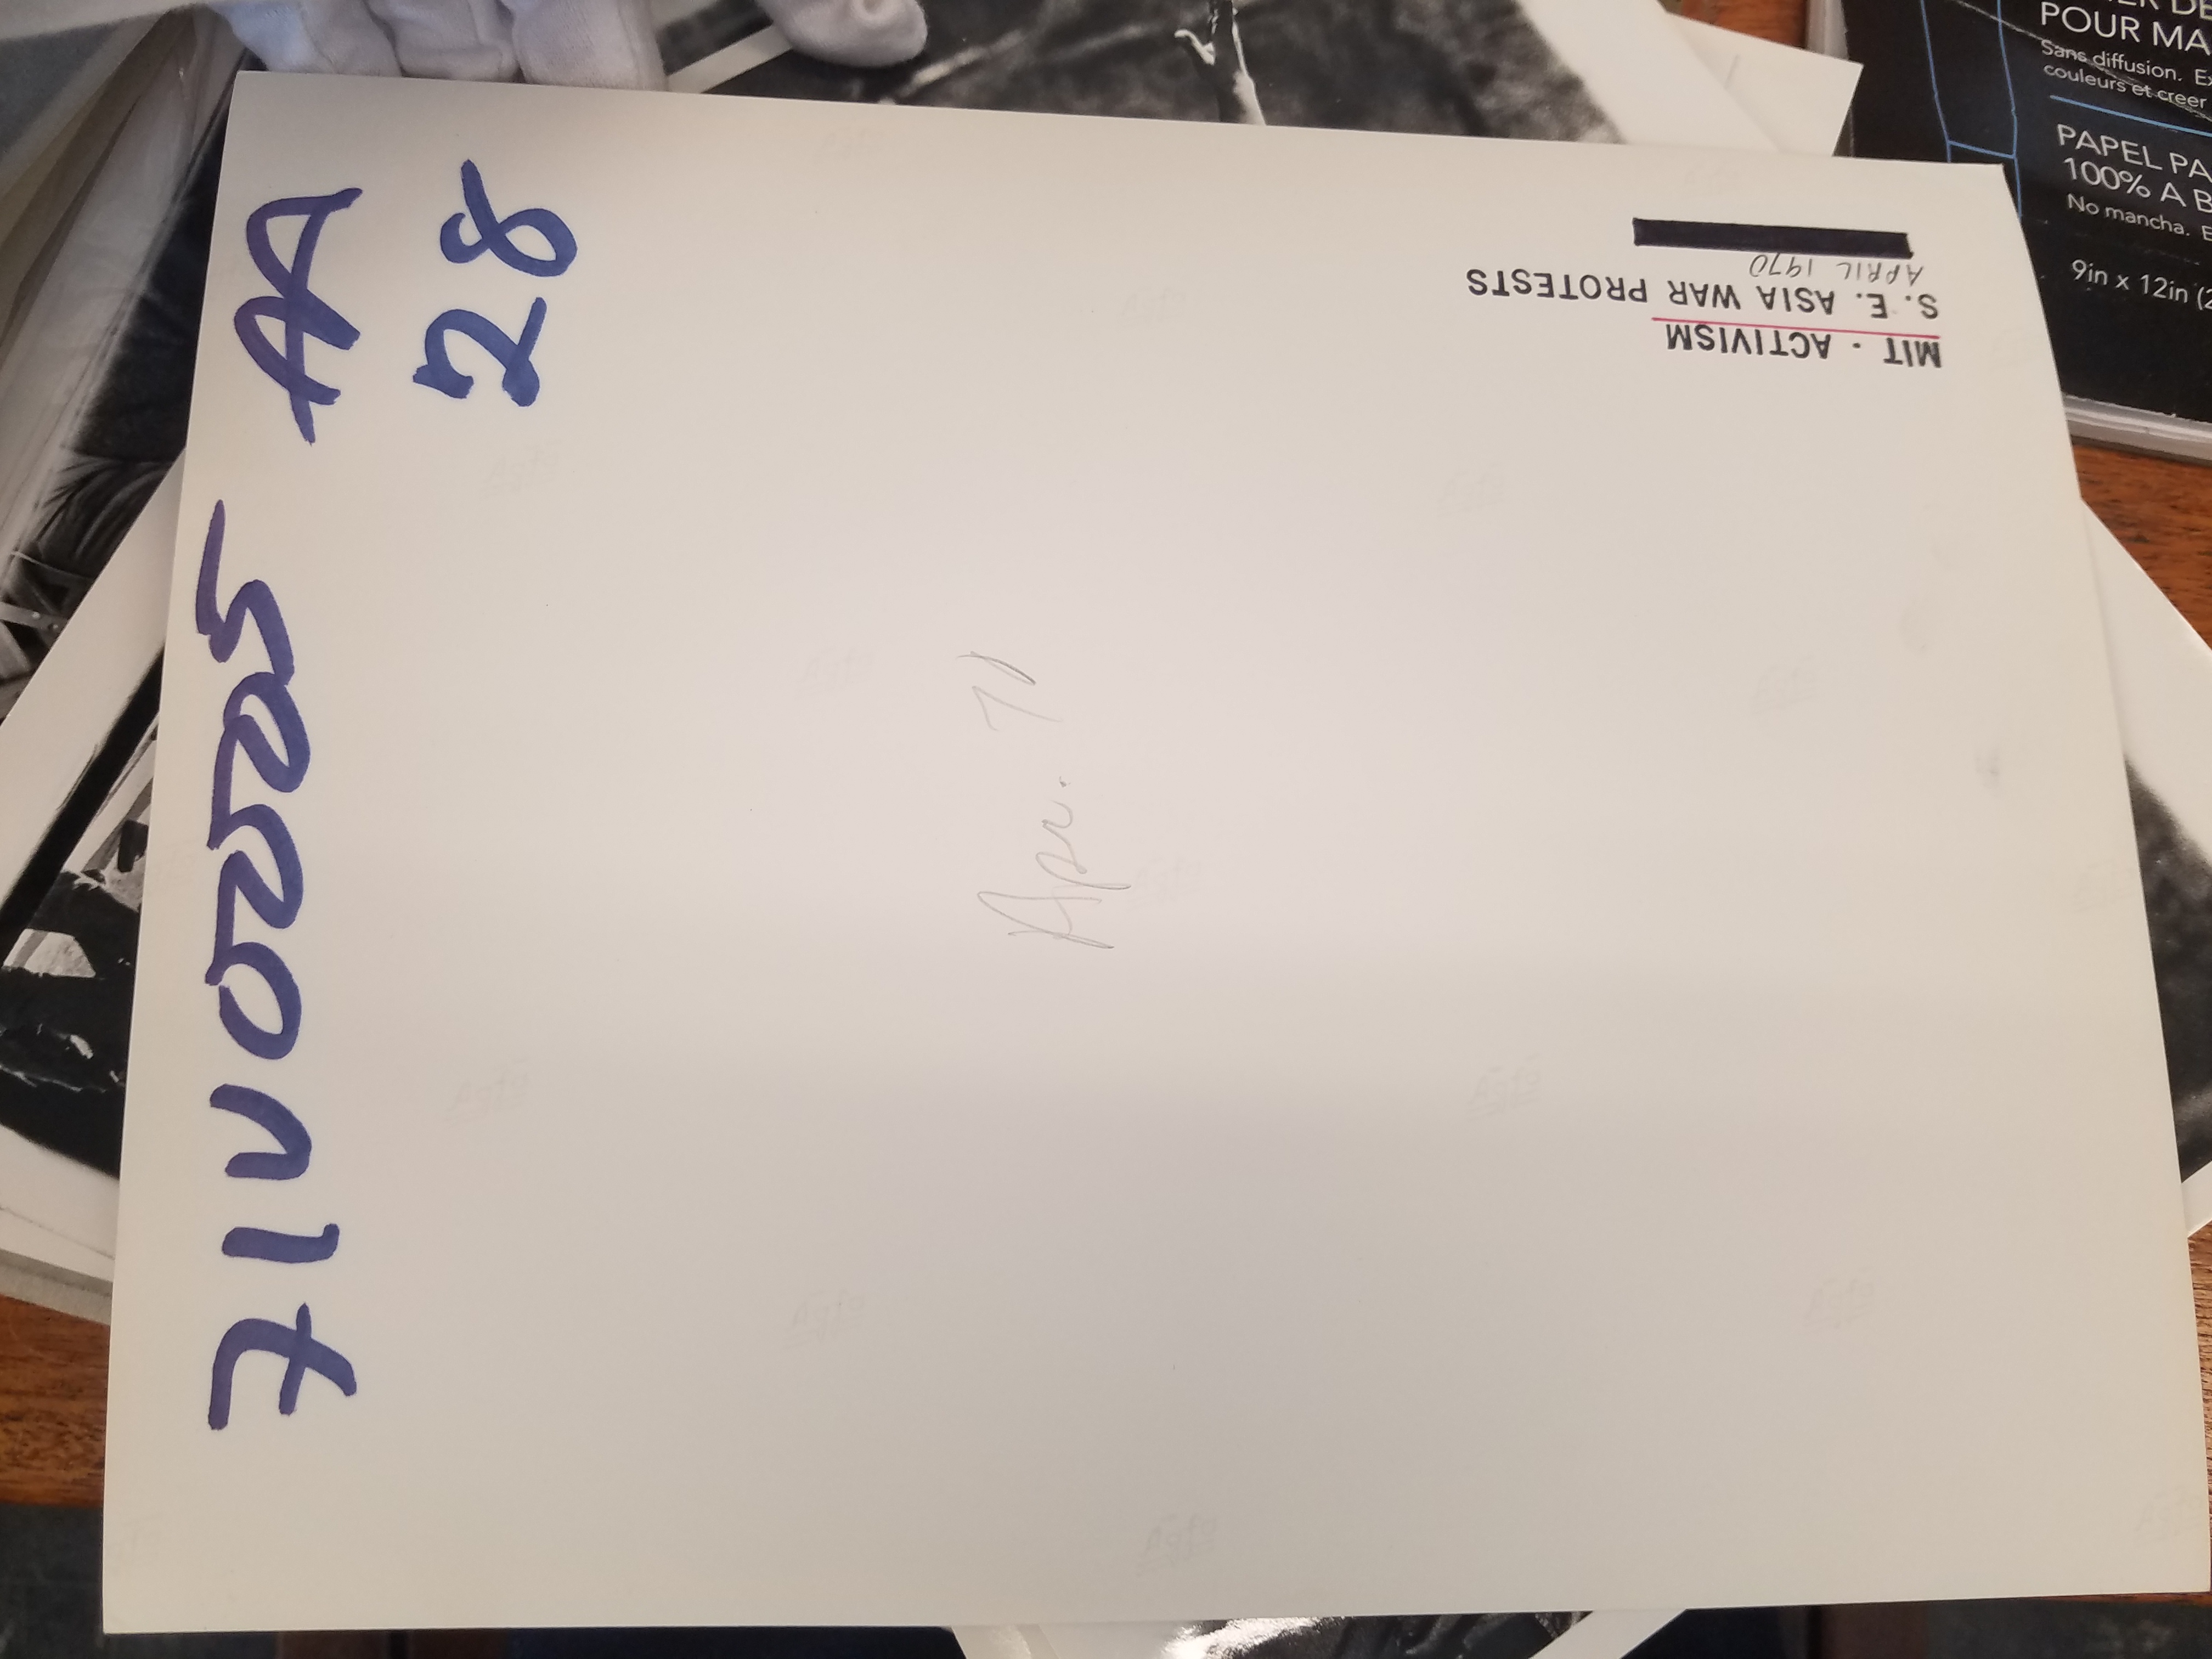 71V0005 AA
28
Apr. 70
MIT · ACTIVISM
S. E. ASIA WAR PROTESTS
APRIL 1970
POUR MA
Sans diffusion. E
couleurs et créer
PAPEL PA
100% A B
No mancha. E
9in x 12in (2